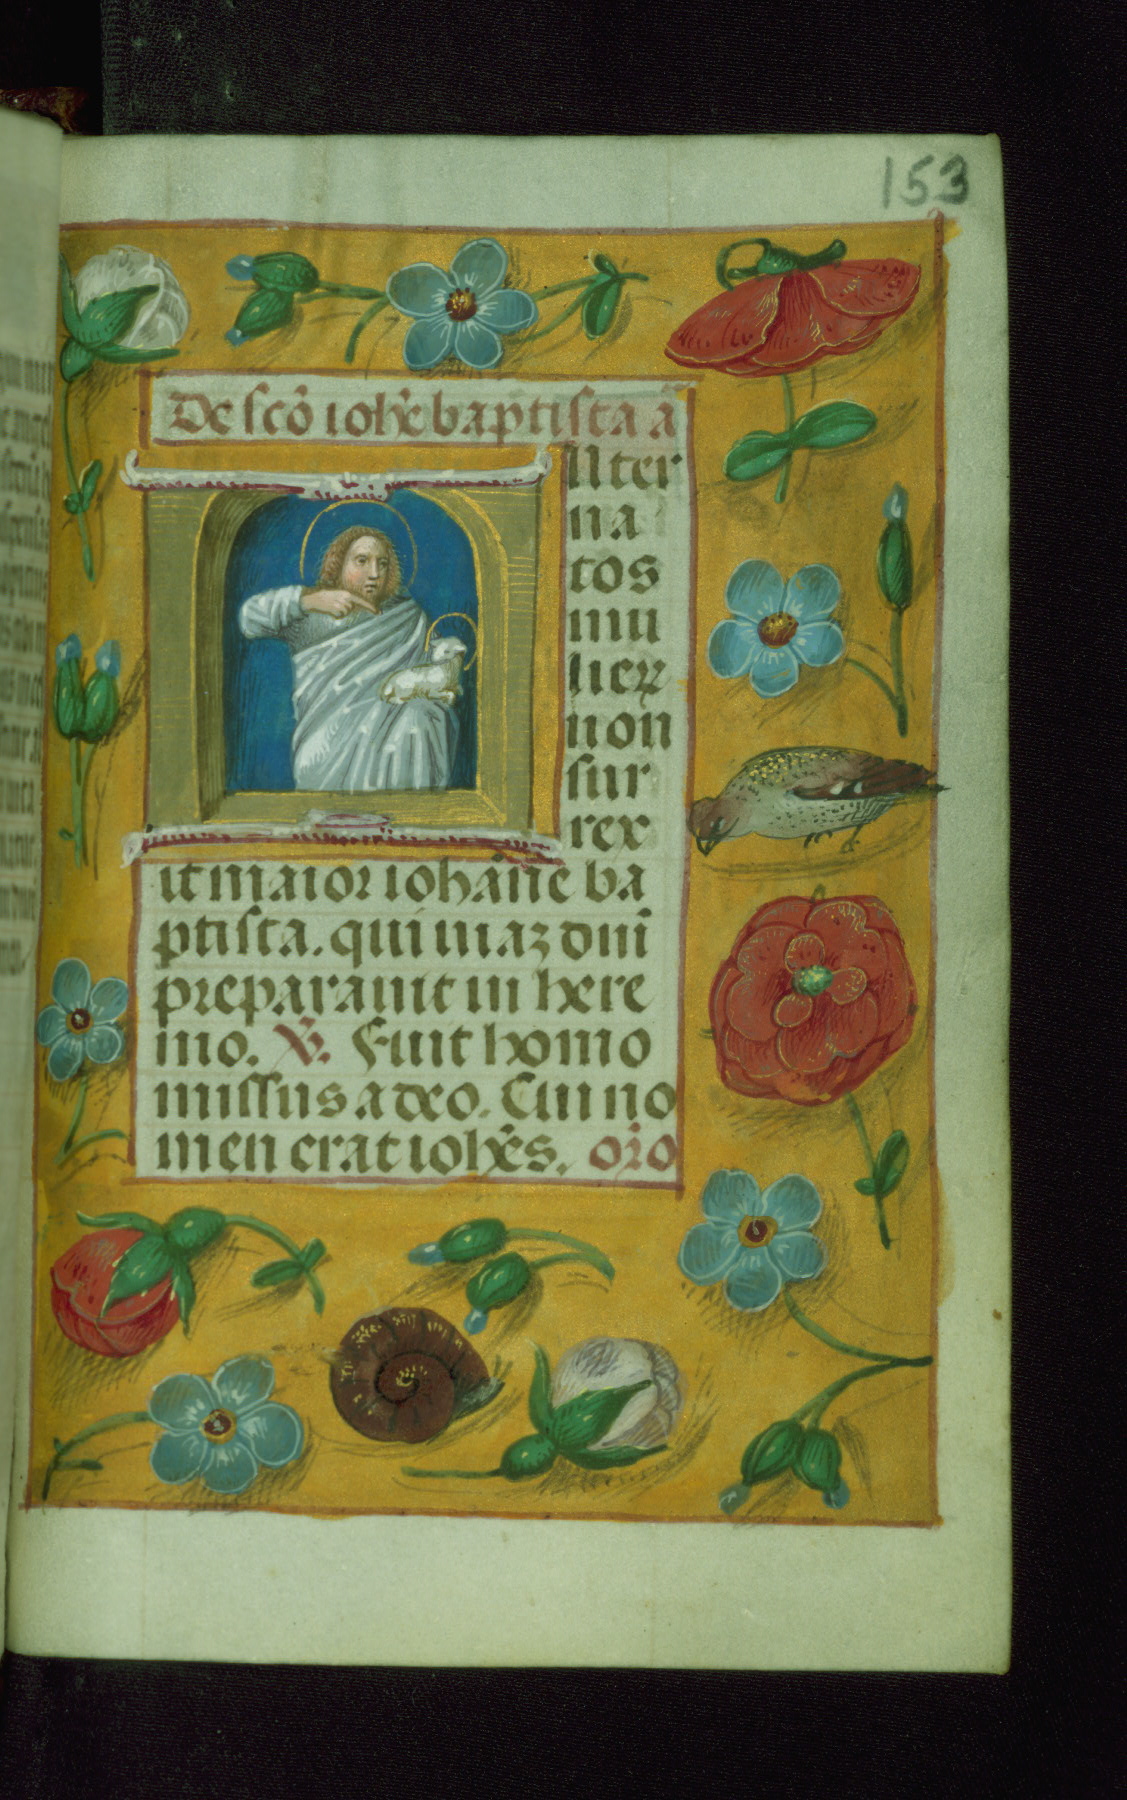 153
De scō ioh̄e baptista ā
Inter
na
tos
mu
lieꝝ
non
sur
rex
it maior iohāne ba
ptista. qui uiaʒ dn̄i
preparauit in here
mo. ℣. Fuit homo
missus a deo. Cui no
men erat ioh̄es. or̄o